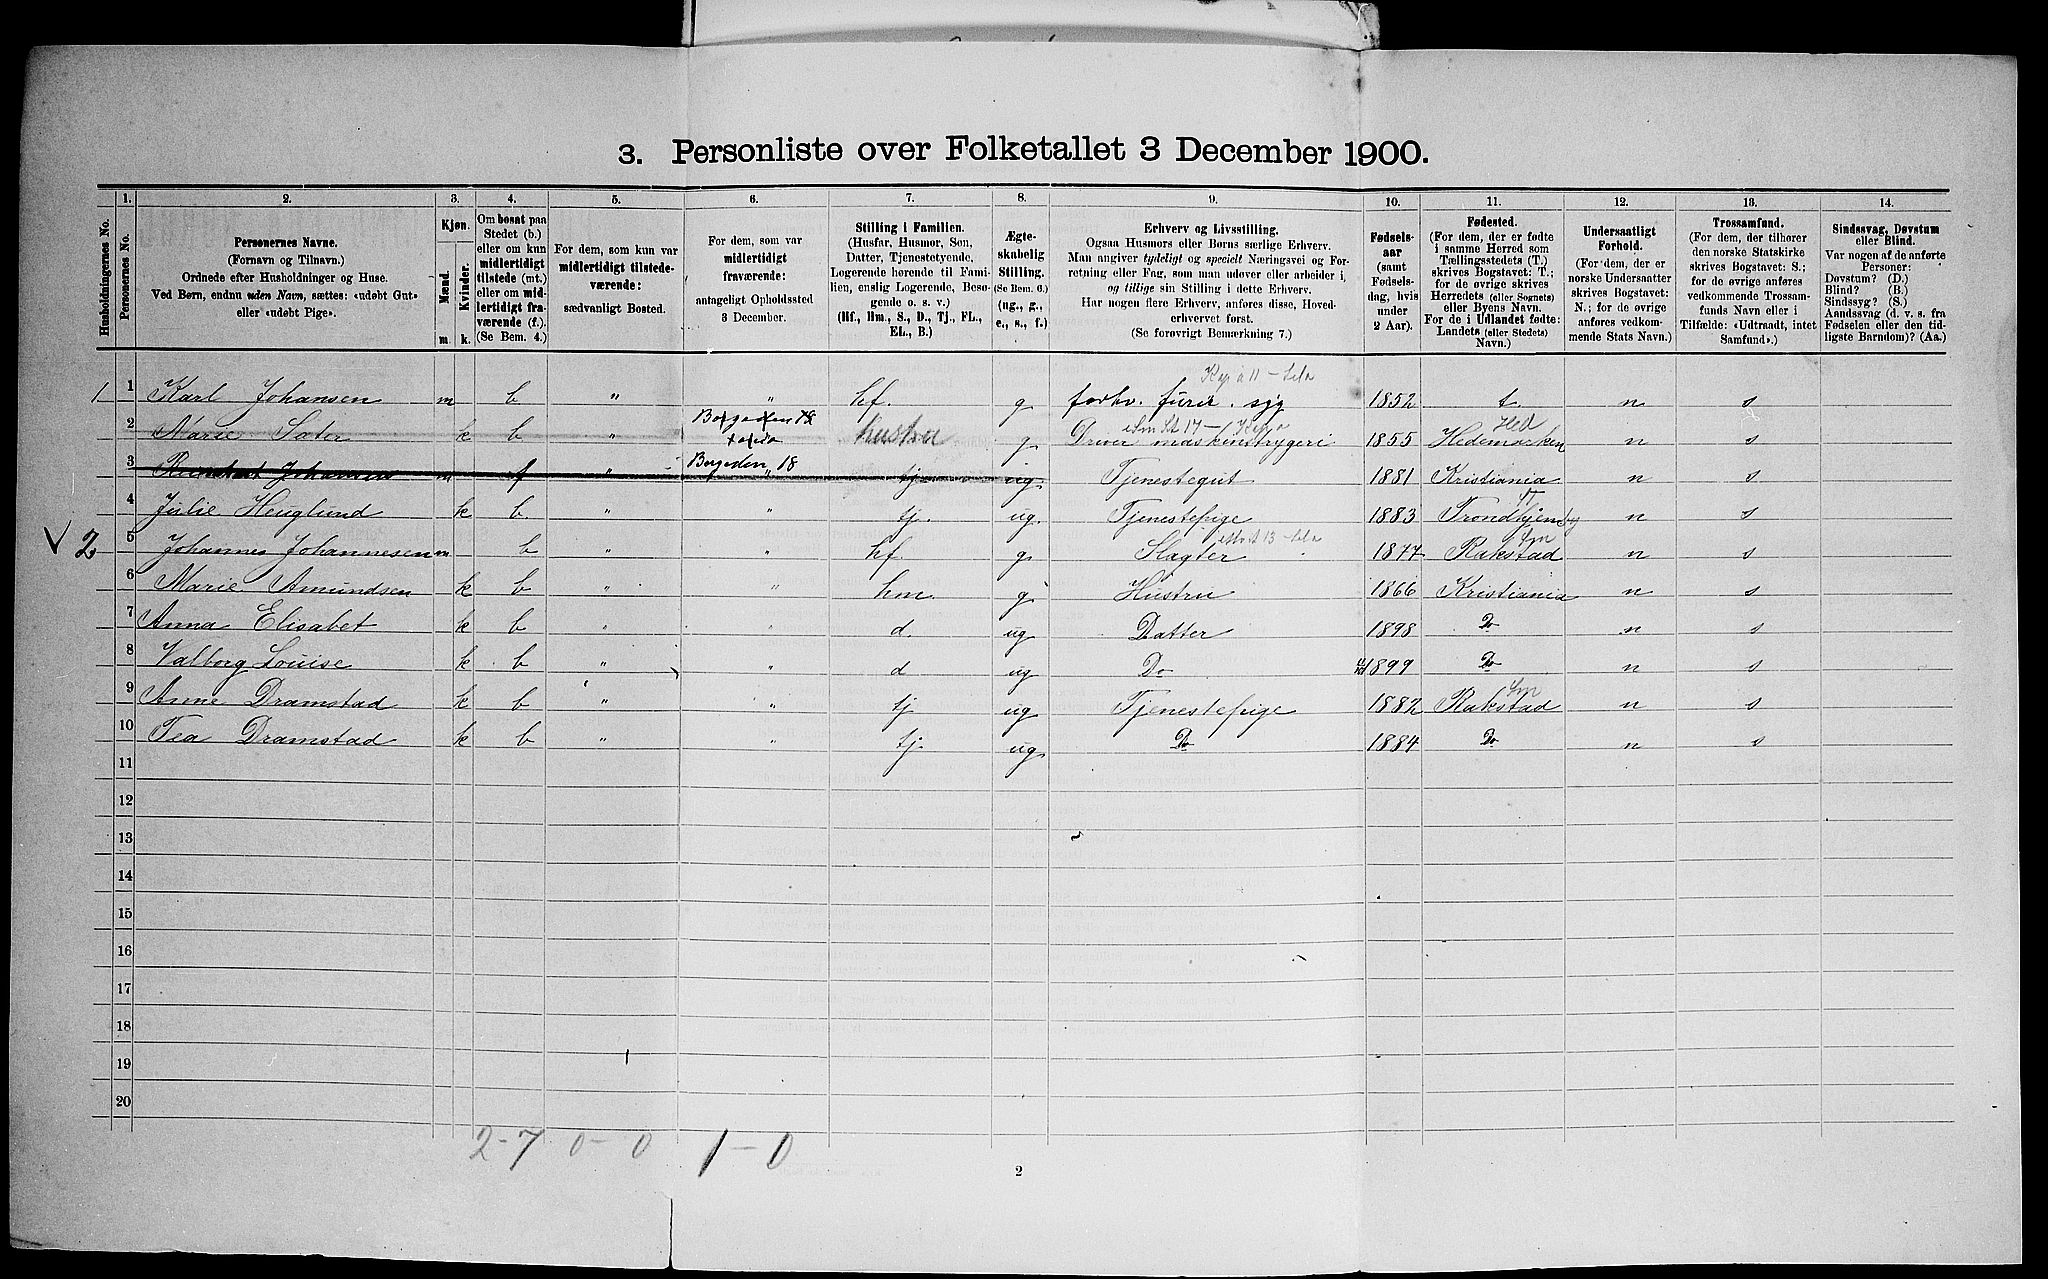 3. Personliste over Folketallet 3 December 1900.
Husholdningernes No.
1.
Personernes No.
2.
Personernes Navne.
(Fornavn og Tilnavn.)
Ordnede efter Husholdninger og Huse.
Ved Børn, endnu uden Navn, sættes: «udøbt Gut»
eller «udøbt Pige».
3.
Kjøn.
Mænd.
Kvinder.
m. k.
4.
Om bosat paa
Stedet (b.)
eller om kun
midlertidigt
tilstede (mt.)
eller om mid-
lertidigt fra-
værende (f.).
(Se Bem. 4.)
5.
For dem, som kun var
midlertidigt tilstede-
værende:
sædvanligt Bosted.
6.
For dem, som var
midlertidigt
fraværende:
antageligt Opholdssted
3 December.
7.
Stilling i Familien.
(Husfar, Husmor, Søn,
Datter, Tjenestetyende,
Logerende hørende til Fami-
lien, enslig Logerende, Besø-
gende o. s. v.)
(Hf., Hm., S., D., Tj., FL.,
EL., B.)
8.
Ægte-
skabelig
Stilling.
(Se Bem. 6.)
(ug., g.,
e., s., f.)
9.
Erhverv og Livsstilling.
Ogsaa Husmors eller Børns særlige Erhverv.
Man angiver tydeligt og specielt Næringsvei og For-
retning eller Fag, som man udøver eller arbeider i,
og tillige sin Stilling i dette Erhverv.
Har nogen flere Erhverv, anføres disse, Hoved-
erhvervet først.
(Se forøvrigt Bemærkning 7.)
10.
Fødsels-
aar
(samt
Fødsels-
dag, hvis
under
2 Aar).
11.
Fødested.
(For dem, der er fødte
i samme Herred som
Tællingsstedets (T.)
skrives Bogstavet: T.;
for de øvrige skrives
Herredets (eller Sognets)
eller Byens Navn.
For de i Udlandet fødte:
Landets (eller Stedets)
Navn.)
12.
Undersaatligt
Forhold.
(For dem, der er
norske Undersaatter
skrives Bogstavet:
N.; for de øvrige
anføres vedkom-
mende Stats Navn.)
13.
Trossamfund.
(For dem, der tilhører
den norske Statskirke
skrives Bogstavet: S.;
for de øvrige anføres
vedkommende Trossam-
funds Navn eller i
Tilfælde: «Udtraadt, intet
Samfund».)
14.
Sindssvag, Døvstum
eller Blind.
Var nogen af de anførte
Personer:
Døvstum? (D.)
Blind? (B.)
Sindssyg? (S.)
Aandssvag (d. v. s. fra
Fødselen eller den tid-
ligste Barndom)? (Aa.)
1 1 Karl Johansen m b " " hf. g forhv. furer. syg 1852 t. n s
2 Marie Sæter k b " hustru g Driver maskinstrygeri 1855 Hedemarken Hed n s
3 Johansen m f " Borgeden 18 " tj ug Tjenestegut 1881 Kristiania n s
4 Julie Heuglund k b. " " tj. ug. Tjenestepige 1883 Trondhjem by n s
2 5 Johannes Johannesen m b " " hf. g. Slagter 1877 Rakstad n s
6 Marie Amundsen k b " " hm. g Hustru 1866 Kristiania n s
7 Anna Elisabet k b " " d. ug Datter 1898 Do n s
8 Valborg Louise k b " " d ug Do 1899 Do n s
9 Anne Dramstad k b " " tj ug Tjenestepige 1882 Rakstad n s
10 Tea Dramstad k b " " tj. ug Do 1884 Do n s
11
12
13
14
15
16
17
18
19
20
2-7 0-0 1-0
2